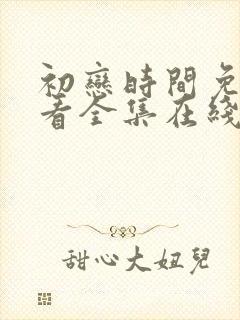 初戀時間免
看全集在綫
甜心大妞兒